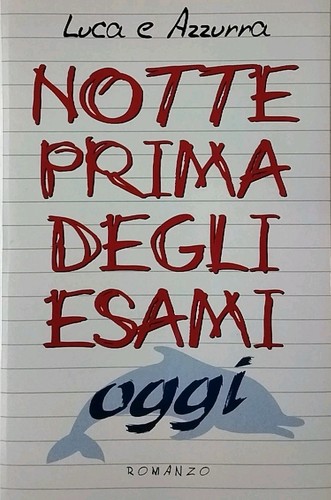 Luca e Azzurra
NOTTE
PRIMA
DEGLI
ESAMI
oggi
ROMANZO